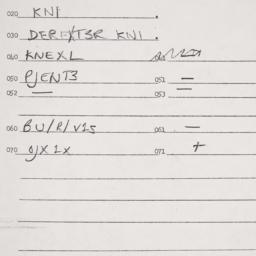 020 KNI .
030 KNI .
040 KNEXL
050 PJENTB 051 —
052 — 053 =
060 BU/R/V15 061 —
070 071 +